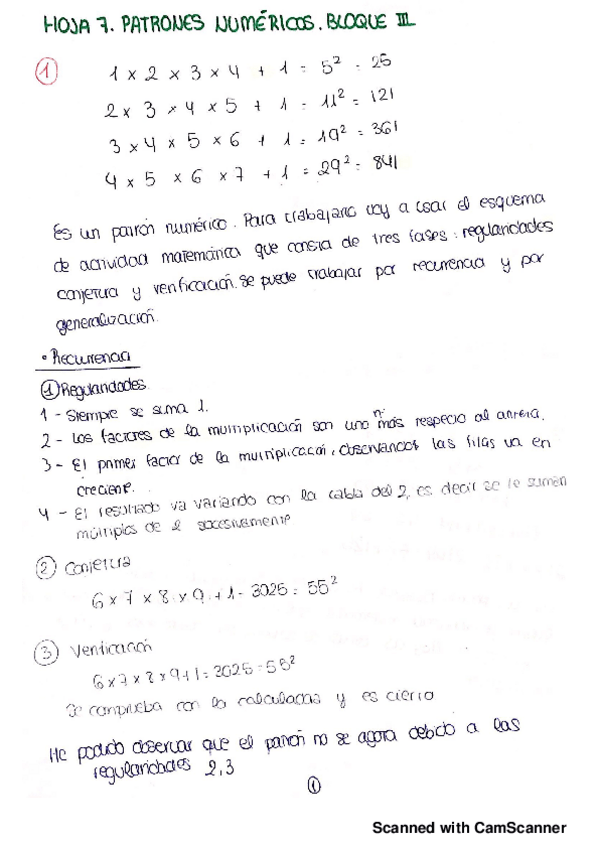 HOJA 7. PATRONES NUMÉRICOS. BLOQUE III
1 1 x 2 x 3 x 4 + 1 = 5² = 25
2 x 3 x 4 x 5 + 1 = 11² = 121
3 x 4 x 5 x 6 + 1 = 19² = 361
4 x 5 x 6 x 7 + 1 = 29² = 841
Es un patrón numérico. Para trabajarlo voy a usar el esquema
de actividad matemática que consta de tres fases: regularidades
conjetura y verificación. Se puede trabajar por recurrencia y por
generalización.
• Recurrencia
1 Regularidades.
1 - Siempre se suma 1.
2 - Los factores de la multiplicación son uno nº más respecto al anterior.
3 - El primer factor de la multiplicación, observando las filas va en
creciente.
4 - El resultado va variando con la tabla del 2, es decir se le suman
múltiplos de 2 sucesivamente
2 Conjetura
6 x 7 x 8 x 9 + 1 = 3025 = 55²
3 Verificación
6 x 7 x 8 x 9 + 1 = 3025 = 55²
Se comprueba con la calculadas y es cierto
He podido observar que el patrón no se agora debido a las
regularidades 2,3
1
Scanned with CamScanner